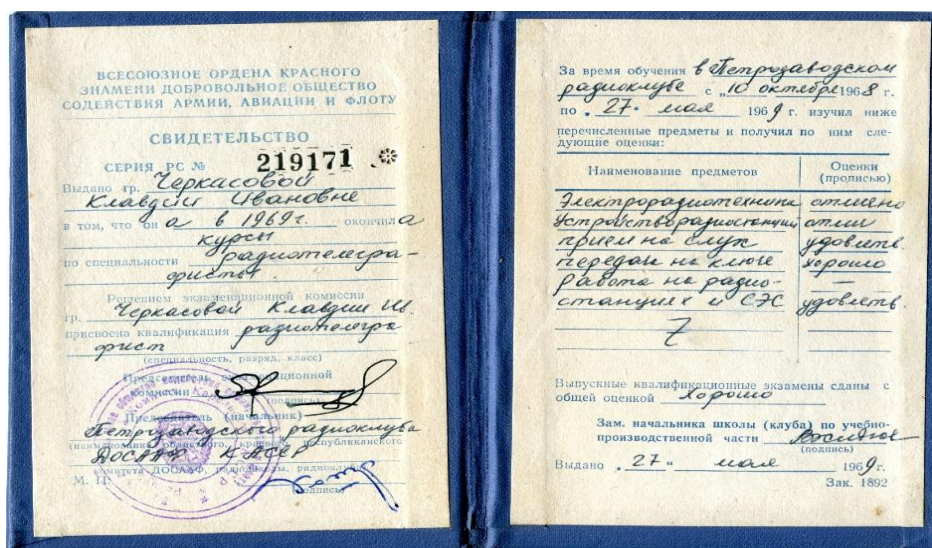 ВСЕСОЮЗНОЕ ОРДЕНА КРАСНОГО
ЗНАМЕНИ ДОБРОВОЛЬНОЕ ОБЩЕСТВО
СОДЕЙСТВИЯ АРМИИ, АВИАЦИИ И ФЛОТУ
СВИДЕТЕЛЬСТВО
СЕРИЯ РС № 219171
Выдано гр. Черкасовой
Клавдии Ивановне
в том, что он а в 1969г. окончил а
курсы
по специальности радиотелегра-
фисты.
Решением экзаменационной комиссии
гр. Черкасовой Клавдии Ив.
присвоена квалификация радиотелегра
фист
(специальность, разряд, класс)
Председатель экзаменационной
комиссии
(подпись)
Председатель (начальник)
Петрозаводского радиоклуба
(наименование областного, краевого, республиканского
ДОСААФ КАССР
комитета ДОСААФ, радиошколы, радиоклуба)
М. П.
(подпись)
За время обучения в Петрозаводском
радиоклубе с „10 октября 1968 г.
по „27" мая 1969 г. изучил ниже
перечисленные предметы и получил по ним сле-
дующие оценки:
Наименование предметов Оценки
(прописью)
Электрорадиотехника отлично
Устройство радиостанции отли
прием на слух удовлетв.
передач на ключе хорошо
Работа на радио- —
станциях и СЭС удовлетв.
Выпускные квалификационные экзамены сданы с
общей оценкой хорошо
Зам. начальника школы (клуба) по учебно-
производственной части
(подпись)
Выдано „27" мая 1969г.
Зак. 1892